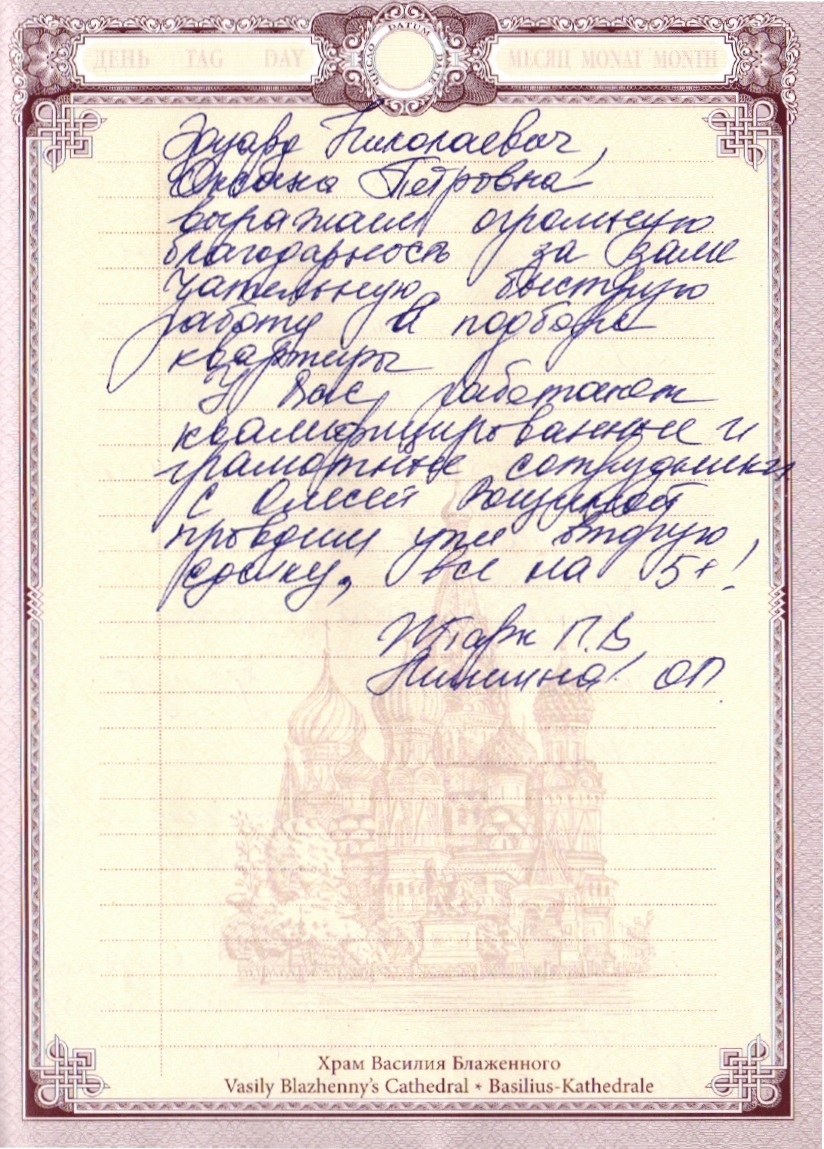 ДЕНЬ TAG DAY
ЧИСЛО DATUM DATE
МЕСЯЦ MONAT MONTH
Эдуард Николаевич,
Оксана Петровна
выражаем огромную
благодарность за заме
чательную, быструю
работу в подборе
квартиры
У Вас работают
квалифицированные и
грамотные сотрудники
С Олесей
проводим уже вторую
сделку, все на 5+!
П.В
ОП
Храм Василия Блаженного
Vasily Blazhenny's Cathedral • Basilius-Kathedrale